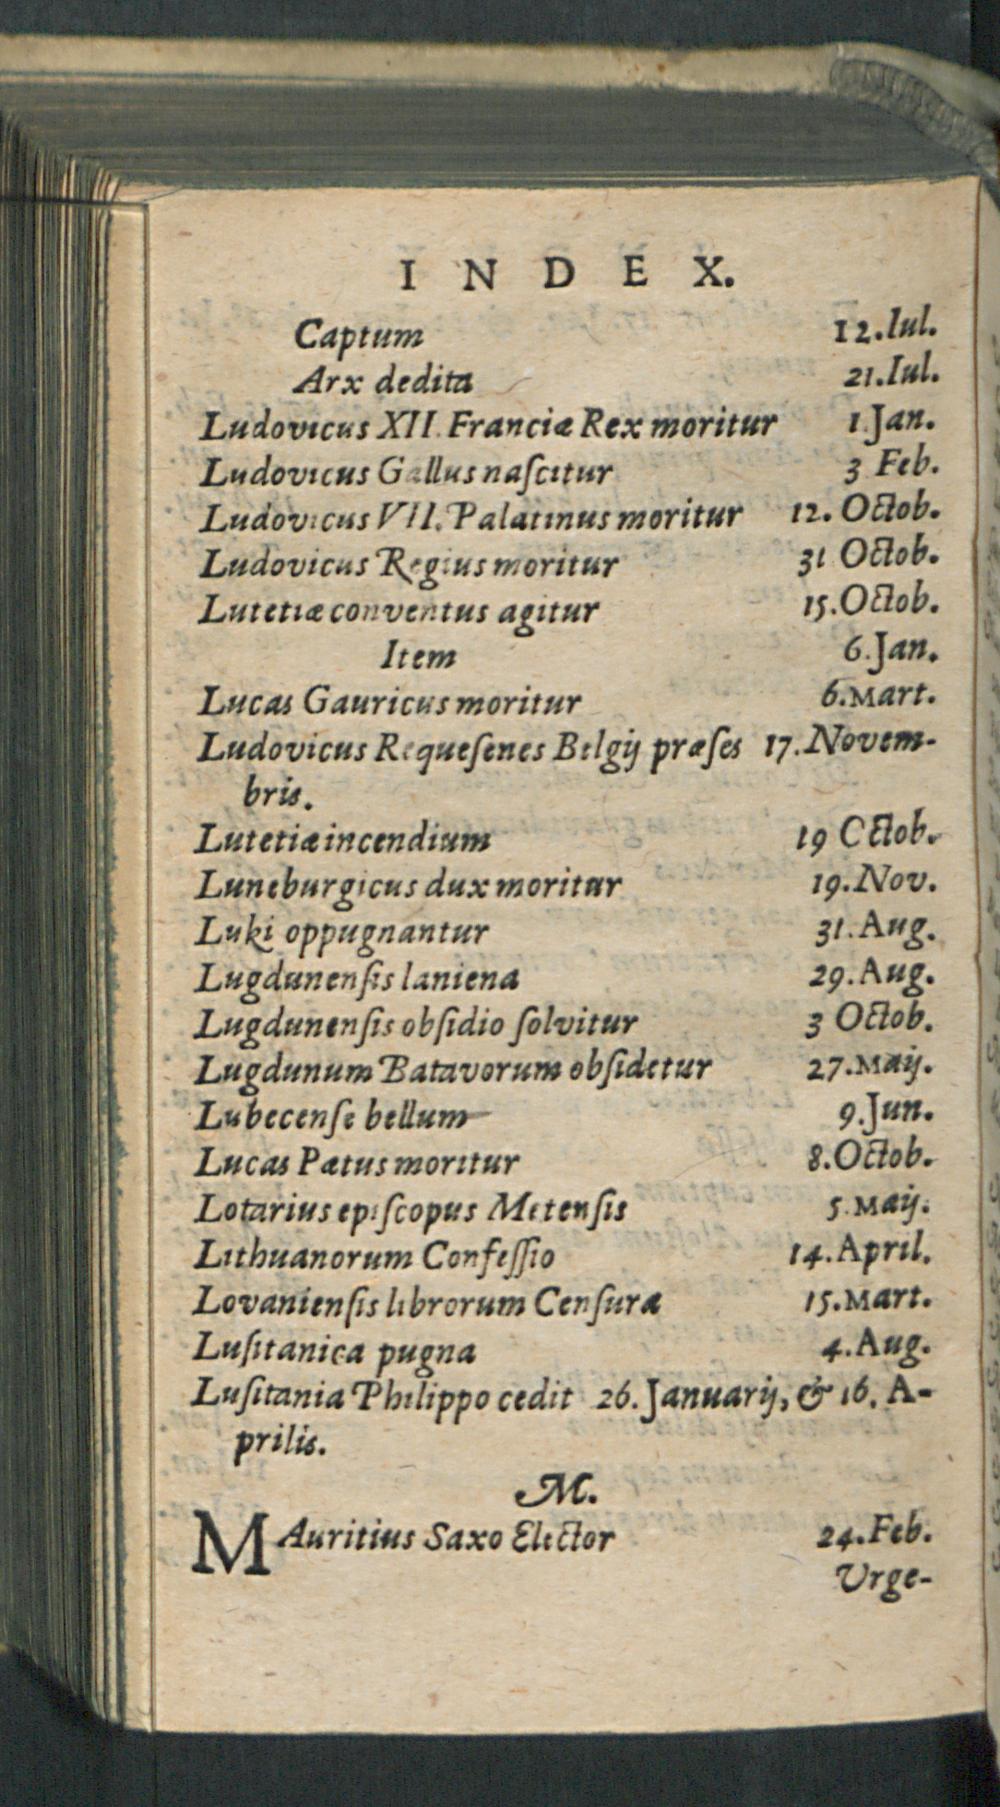 INDEX.
Captum 12.Iul.
Arx dedita 21.Iul.
Ludovicus XII. Franciæ Rex moritur 1.Jan.
Ludovicus Gallus naſcitur 3 Feb.
Ludovicus VII. Palatinus moritur 12. Octob.
Ludovicus Regius moritur 31 Octob.
Lutetiæ conventus agitur 15.Octob.
Item 6.Jan.
Lucas Gauricus moritur 6.Mart.
Ludovicus Requeſenes Belgij præſes 17.Novem-
bris.
Lutetiæ incendium 19 Octob.
Luneburgicus dux moritur 19.Nov.
Luki oppugnantur 31.Aug.
Lugdunenſis laniena 29.Aug.
Lugdunenſis obſidio ſolvitur 3 Octob.
Lugdunum Batavorum obſidetur 27.Maij.
Lubecenſe bellum 9.Jun.
Lucas Pætus moritur 8.Octob.
Lotarius epiſcopus Metenſis 5.Maij.
Lithuanorum Confeſſio 14.April.
Lovanienſis librorum Cenſura 15.Mart.
Luſitanica pugna 4.Aug.
Luſitania Philippo cedit 26.Januarij, & 16. A-
prilis.
M.
MAuritius Saxo Elector 24.Feb.
Urge-